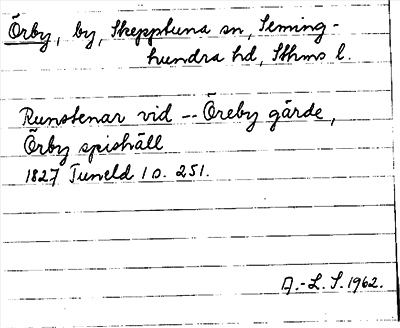 Örby, by, Skepptuna sn, Seming-
hundra hd, Sthms l.
Runstenar vid -- Öreby gärde,
Örby spishäll
1827 Tuneld 1 o. 251.
A.-L. S. 1962.